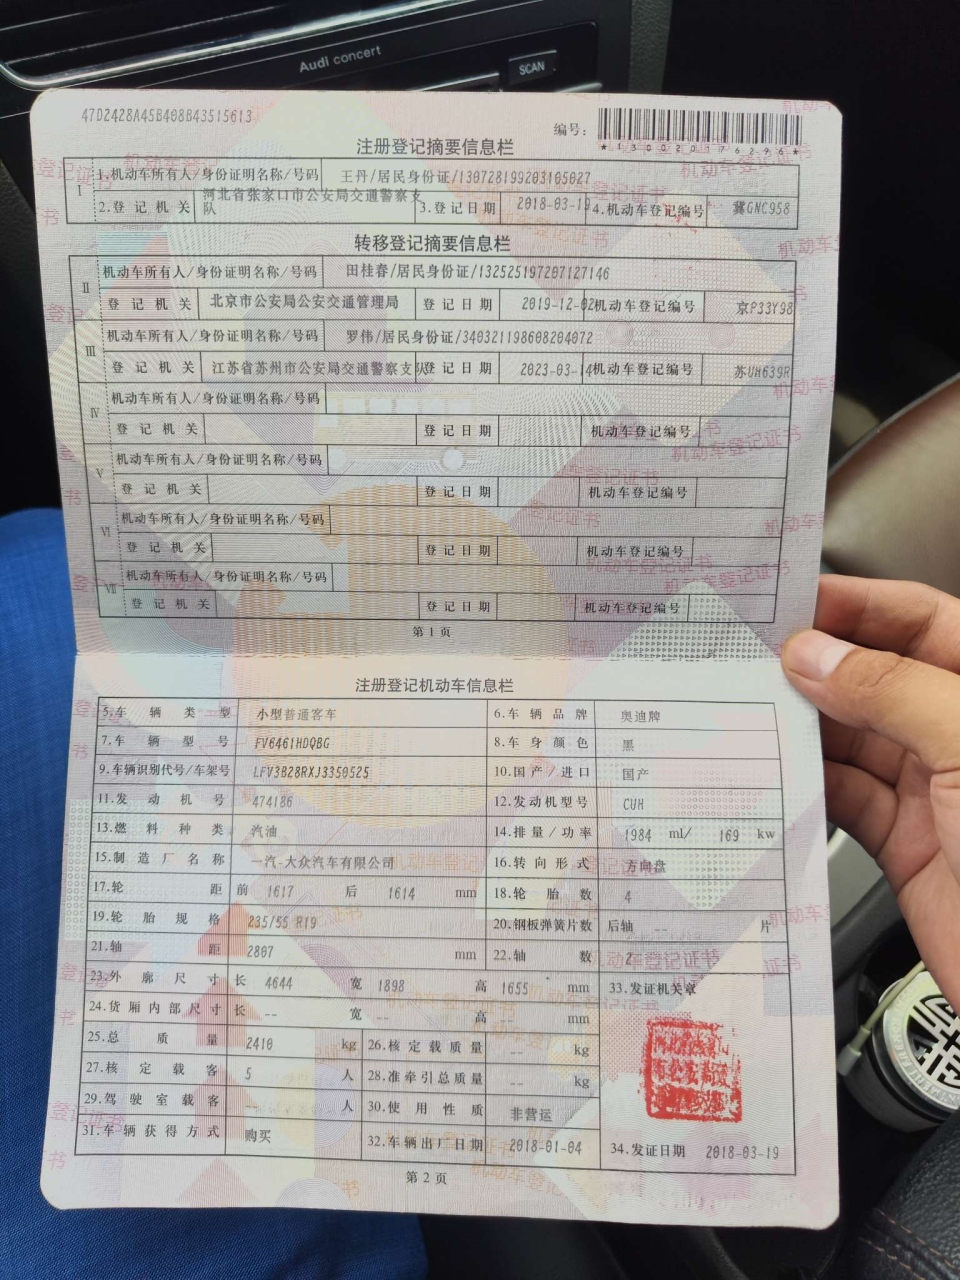 Audi concert
SCAN
47D2428A45B408B43515613
编号:
*130020176296*
注册登记摘要信息栏
I 1.机动车所有人/身份证明名称/号码 王丹/居民身份证/130728199203105027
2.登记机关 河北省张家口市公安局交通警察支队 3.登记日期 2018-03-19 4.机动车登记编号 冀GNC958
转移登记摘要信息栏
II 机动车所有人/身份证明名称/号码 田桂春/居民身份证/132525197207127146
登记机关 北京市公安局公安交通管理局 登记日期 2019-12-02 机动车登记编号 京P33Y98
III 机动车所有人/身份证明名称/号码 罗伟/居民身份证/340321198608204072
登记机关 江苏省苏州市公安局交通警察支队 登记日期 2023-03-14 机动车登记编号 苏UH639R
IV 机动车所有人/身份证明名称/号码
登记机关 登记日期 机动车登记编号
V 机动车所有人/身份证明名称/号码
登记机关 登记日期 机动车登记编号
VI 机动车所有人/身份证明名称/号码
登记机关 登记日期 机动车登记编号
VII 机动车所有人/身份证明名称/号码
登记机关 登记日期 机动车登记编号
第1页
注册登记机动车信息栏
5.车辆类型 小型普通客车 6.车辆品牌 奥迪牌
7.车辆型号 FV6461HDQBG 8.车身颜色 黑
9.车辆识别代号/车架号 LFV3B28RXJ3350525 10.国产/进口 国产
11.发动机号 474186 12.发动机型号 CUH
13.燃料种类 汽油 14.排量/功率 1984 ml/ 169 kw
15.制造厂名称 一汽-大众汽车有限公司 16.转向形式 方向盘
17.轮距 前 1617 后 1614 mm 18.轮胎数 4
19.轮胎规格 235/55 R19 20.钢板弹簧片数 后轴 -- 片
21.轴距 2807 mm 22.轴数 2
23.外廓尺寸 长 4644 宽 1898 高 1655 mm 33.发证机关章
24.货厢内部尺寸 长 -- 宽 -- 高 -- mm
25.总质量 2410 kg 26.核定载质量 -- kg
27.核定载客 5 人 28.准牵引总质量 -- kg
29.驾驶室载客 -- 人 30.使用性质 非营运
31.车辆获得方式 购买 32.车辆出厂日期 2018-01-04 34.发证日期 2018-03-19
第2页